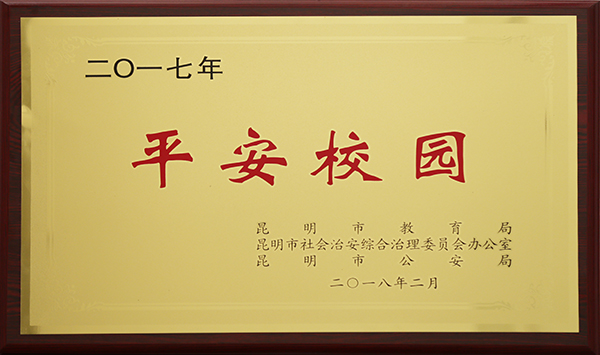 二〇一七年
平安校园
昆明市教育局
昆明市社会治安综合治理委员会办公室
昆明市公安局
二〇一八年二月